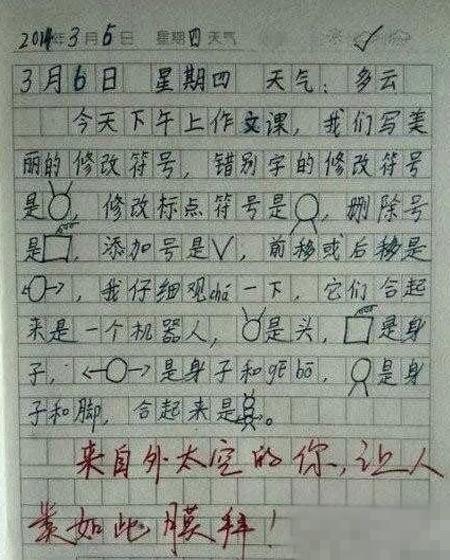 2014年3月6日 星期四 天气
3月6日 星期四 天气：多云
今天下午上作文课，我们写美
丽的修改符号，错别字的修改符号
是 ，修改标点符号是 ，删除号
是 ，添加号是∨，前移或后移是
←○→，我仔细观chá一下，它们合起
来是一个机器人， 是头， 是身
子，←○→是身子和gē bō， 是身
子和脚，合起来是 。
来自外太空的你，让人
如此膜拜！